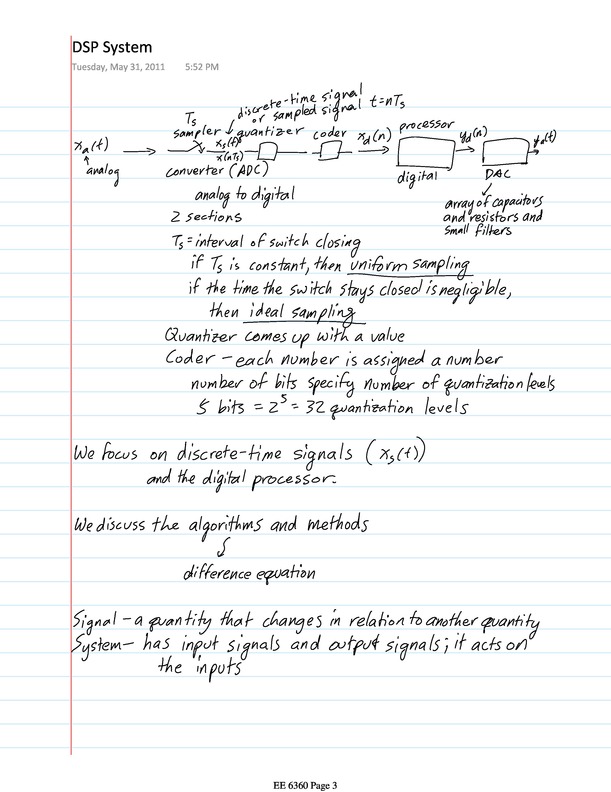 DSP System
Tuesday, May 31, 2011 5:52 PM
discrete-time signal
or sampled signal t=nTs
Ts
sampler quantizer coder xd(n) processor yd(n) ya(t)
xa(t) xs(t)
x(nTs)
analog converter (ADC) digital DAC
analog to digital array of capacitors
2 sections and resistors and
small filters
Ts = interval of switch closing
if Ts is constant, then uniform sampling
if the time the switch stays closed is negligible,
then ideal sampling
Quantizer comes up with a value
Coder – each number is assigned a number
number of bits specify number of quantization levels
5 bits = 2^5 = 32 quantization levels
We focus on discrete-time signals (xs(t))
and the digital processor.
We discuss the algorithms and methods
difference equation
Signal – a quantity that changes in relation to another quantity
System – has input signals and output signals; it acts on
the inputs
EE 6360 Page 3